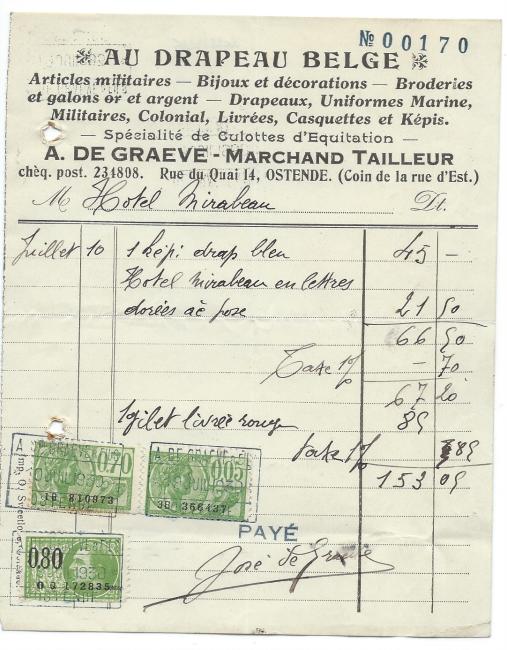 Nº 00170
AU DRAPEAU BELGE
Articles militaires — Bijoux et décorations — Broderies
et galons or et argent — Drapeaux, Uniformes Marine,
Militaires, Colonial, Livrées, Casquettes et Képis.
— Spécialité de Culottes d'Equitation —
A. DE GRAEVE - MARCHAND TAILLEUR
chèq. post. 231808. Rue du Quai 14, OSTENDE. (Coin de la rue d'Est.)
M Hotel Mirabeau Dt.
Juillet 10 1 képi drap bleu 45 —
Hotel Mirabeau en lettres
dorées pose 21 50
66 50
Taxe 1% — 70
67 20
1 gilet livrée rouge 85
taxe 1% 85
153 05
A. DE GRAEVE
0.70
1930
1B 810873
OSTENDE
A. DE GRAEVE
0.05
JUIL 1930
3B 366437
PAYÉ
0.80
1930
0 0 172835
José de Graeve